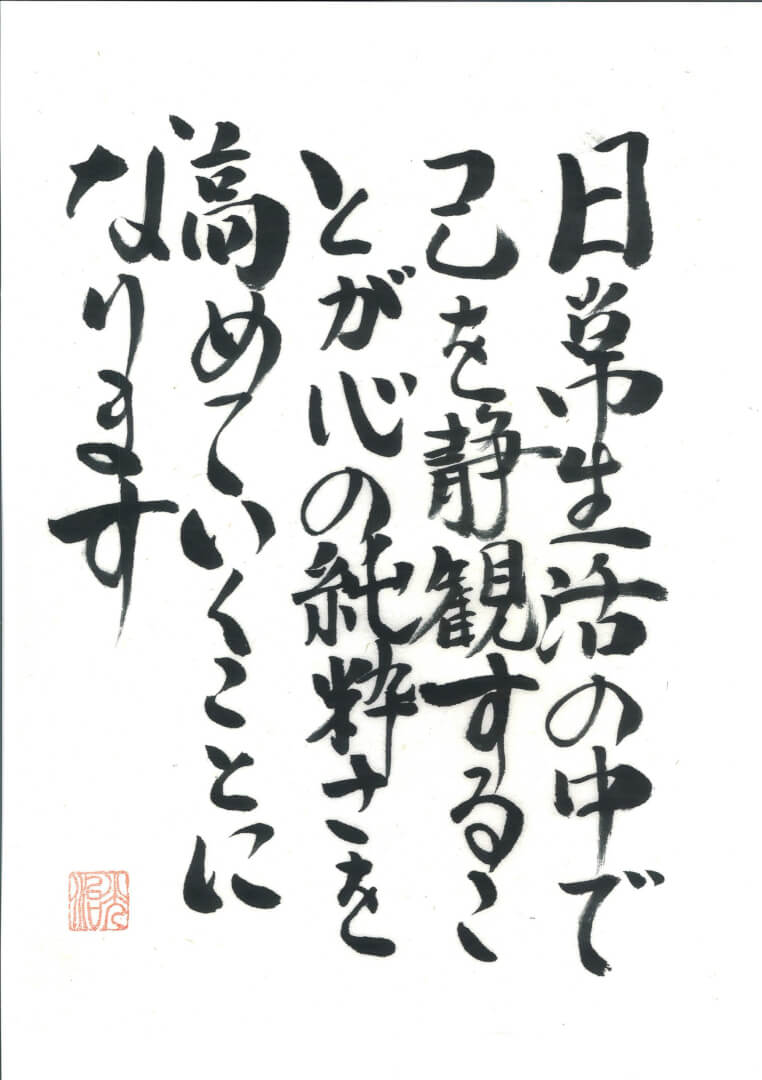 日常生活の中で
己を静観するこ
とが心の純粋さを
高めていくことに
なります